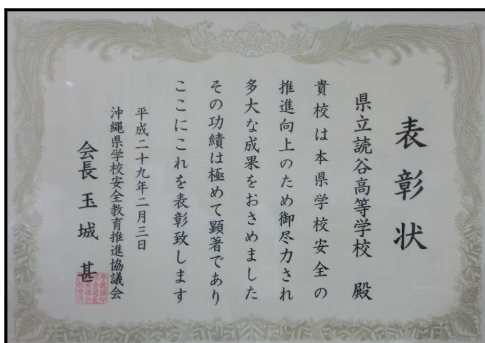 表彰状
県立読谷高等学校 殿
貴校は本県学校安全の
推進向上のため御尽力され
多大な成果をおさめました
その功績は極めて顕著であり
ここにこれを表彰致します
平成二十九年二月三日
沖縄県学校安全教育推進協議会
会長 玉城 甚